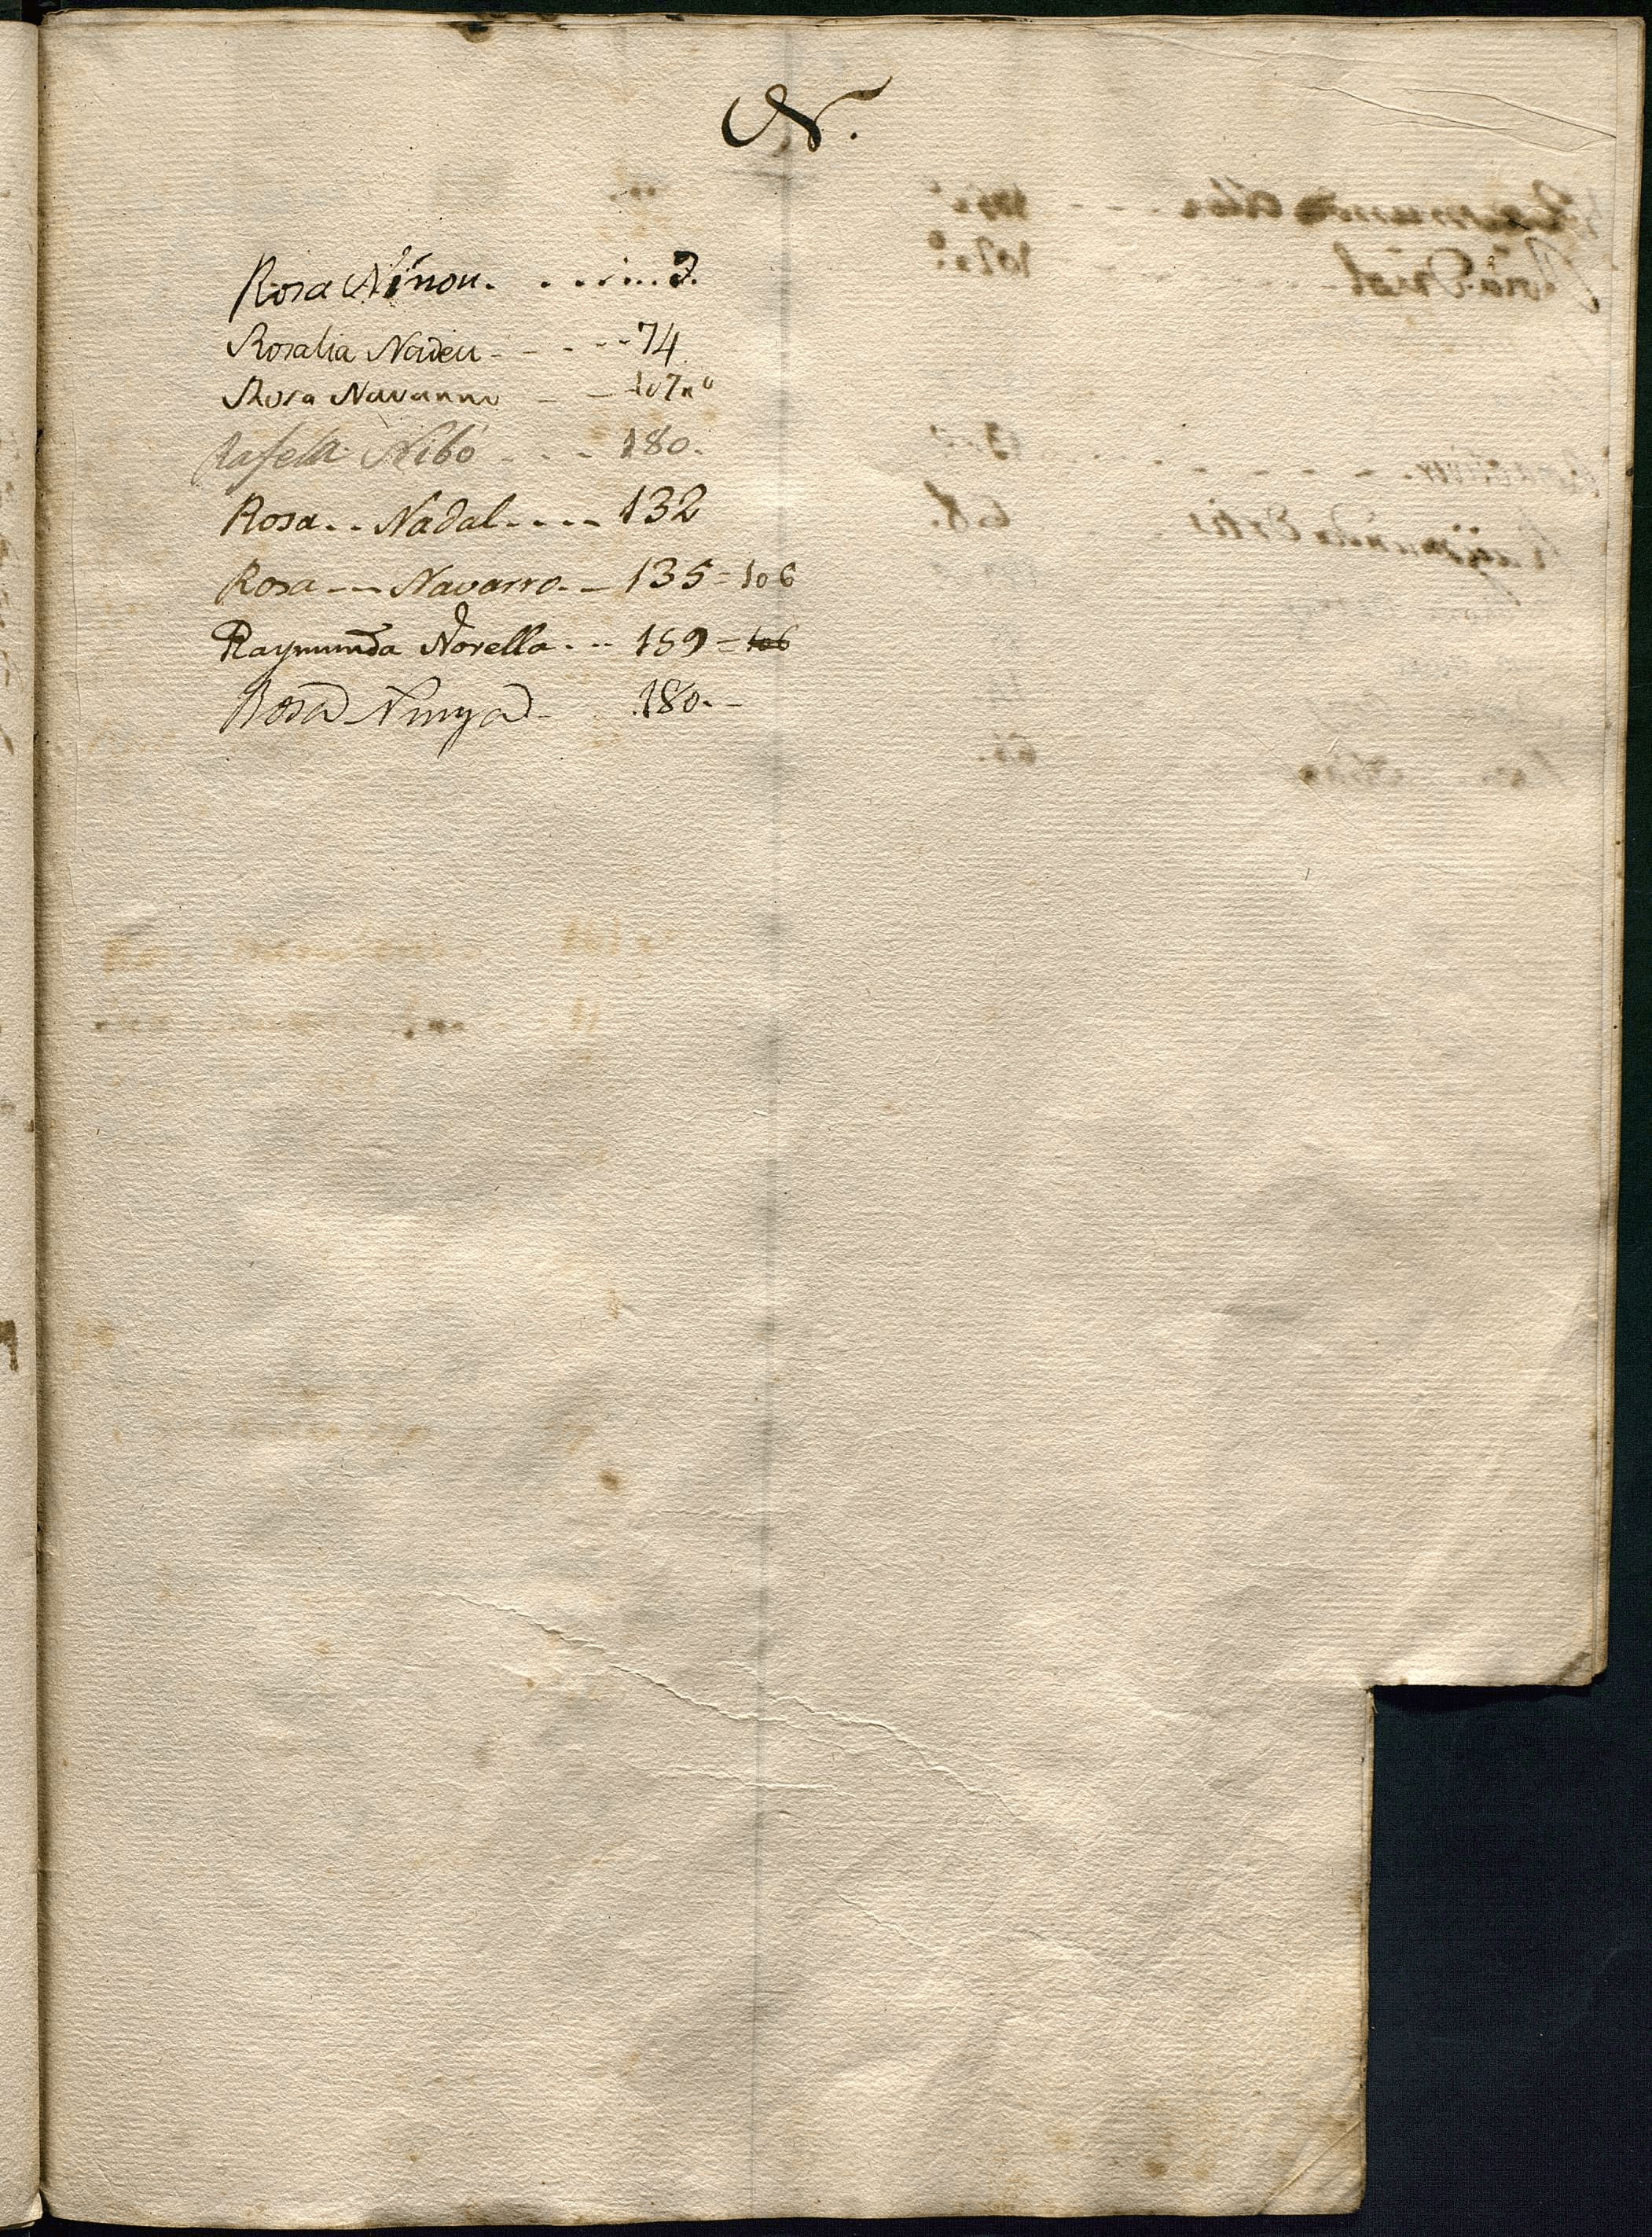 N.
Rosa Ninou. . . . . . . . 3.
Rosalia Nadeu - - - - - 74
Rosa Navarro - - 107 nº
Rafela Ribó - - - 180.
Rosa. . Nadal. . . . 132
Rosa --- Navarro. _ 135 = 106
Raymunda Novella. -- 159 = 106
Rosa Ninya - 180. -